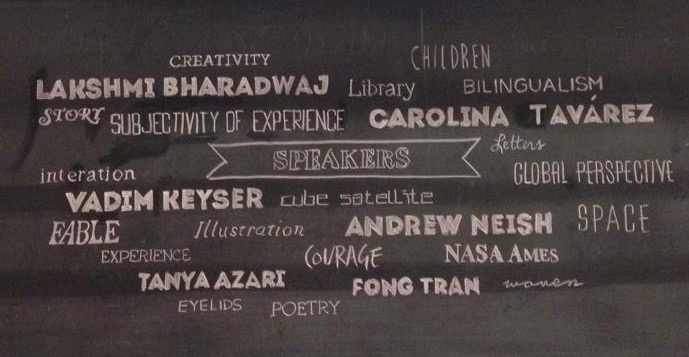 CREATIVITY CHILDREN
LAKSHMI BHARADWAJ Library BILINGUALISM
STORY SUBJECTIVITY OF EXPERIENCE CAROLINA TAVÁREZ
SPEAKERS Letters
interation GLOBAL PERSPECTIVE
VADIM KEYSER cube satellite
FABLE Illustration ANDREW NEISH SPACE
EXPERIENCE COURAGE NASA AMES
TANYA AZARI FONG TRAN women
EYELIDS POETRY